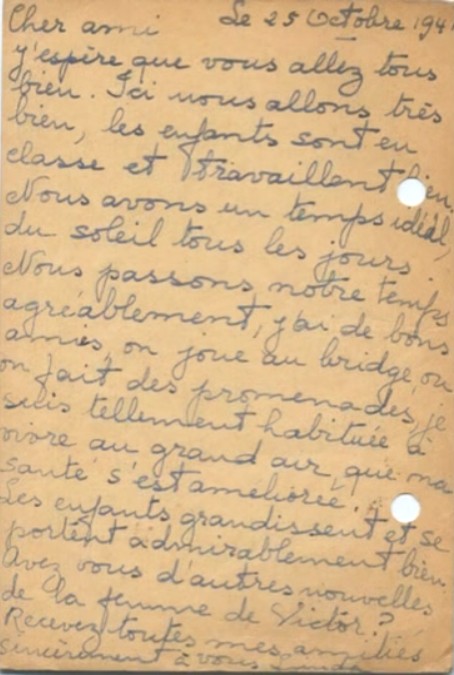 Cher ami Le 25 Octobre 194
j'espère que vous allez tous
bien. Ici nous allons très
bien, les enfants sont en
classe et travaillent bien.
Nous avons un temps idéal,
du soleil tous les jours.
Nous passons notre temps
agréablement, j'ai de bons
amis, on joue au bridge, ou
on fait des promenades, je
suis tellement habituée à
vivre au grand air, que ma
santé s'est améliorée.
Les enfants grandissent et se
portent admirablement bien.
Avez vous d'autres nouvelles
de la femme de Victor?
Recevez toutes mes amitiés
Sincèrement à vous